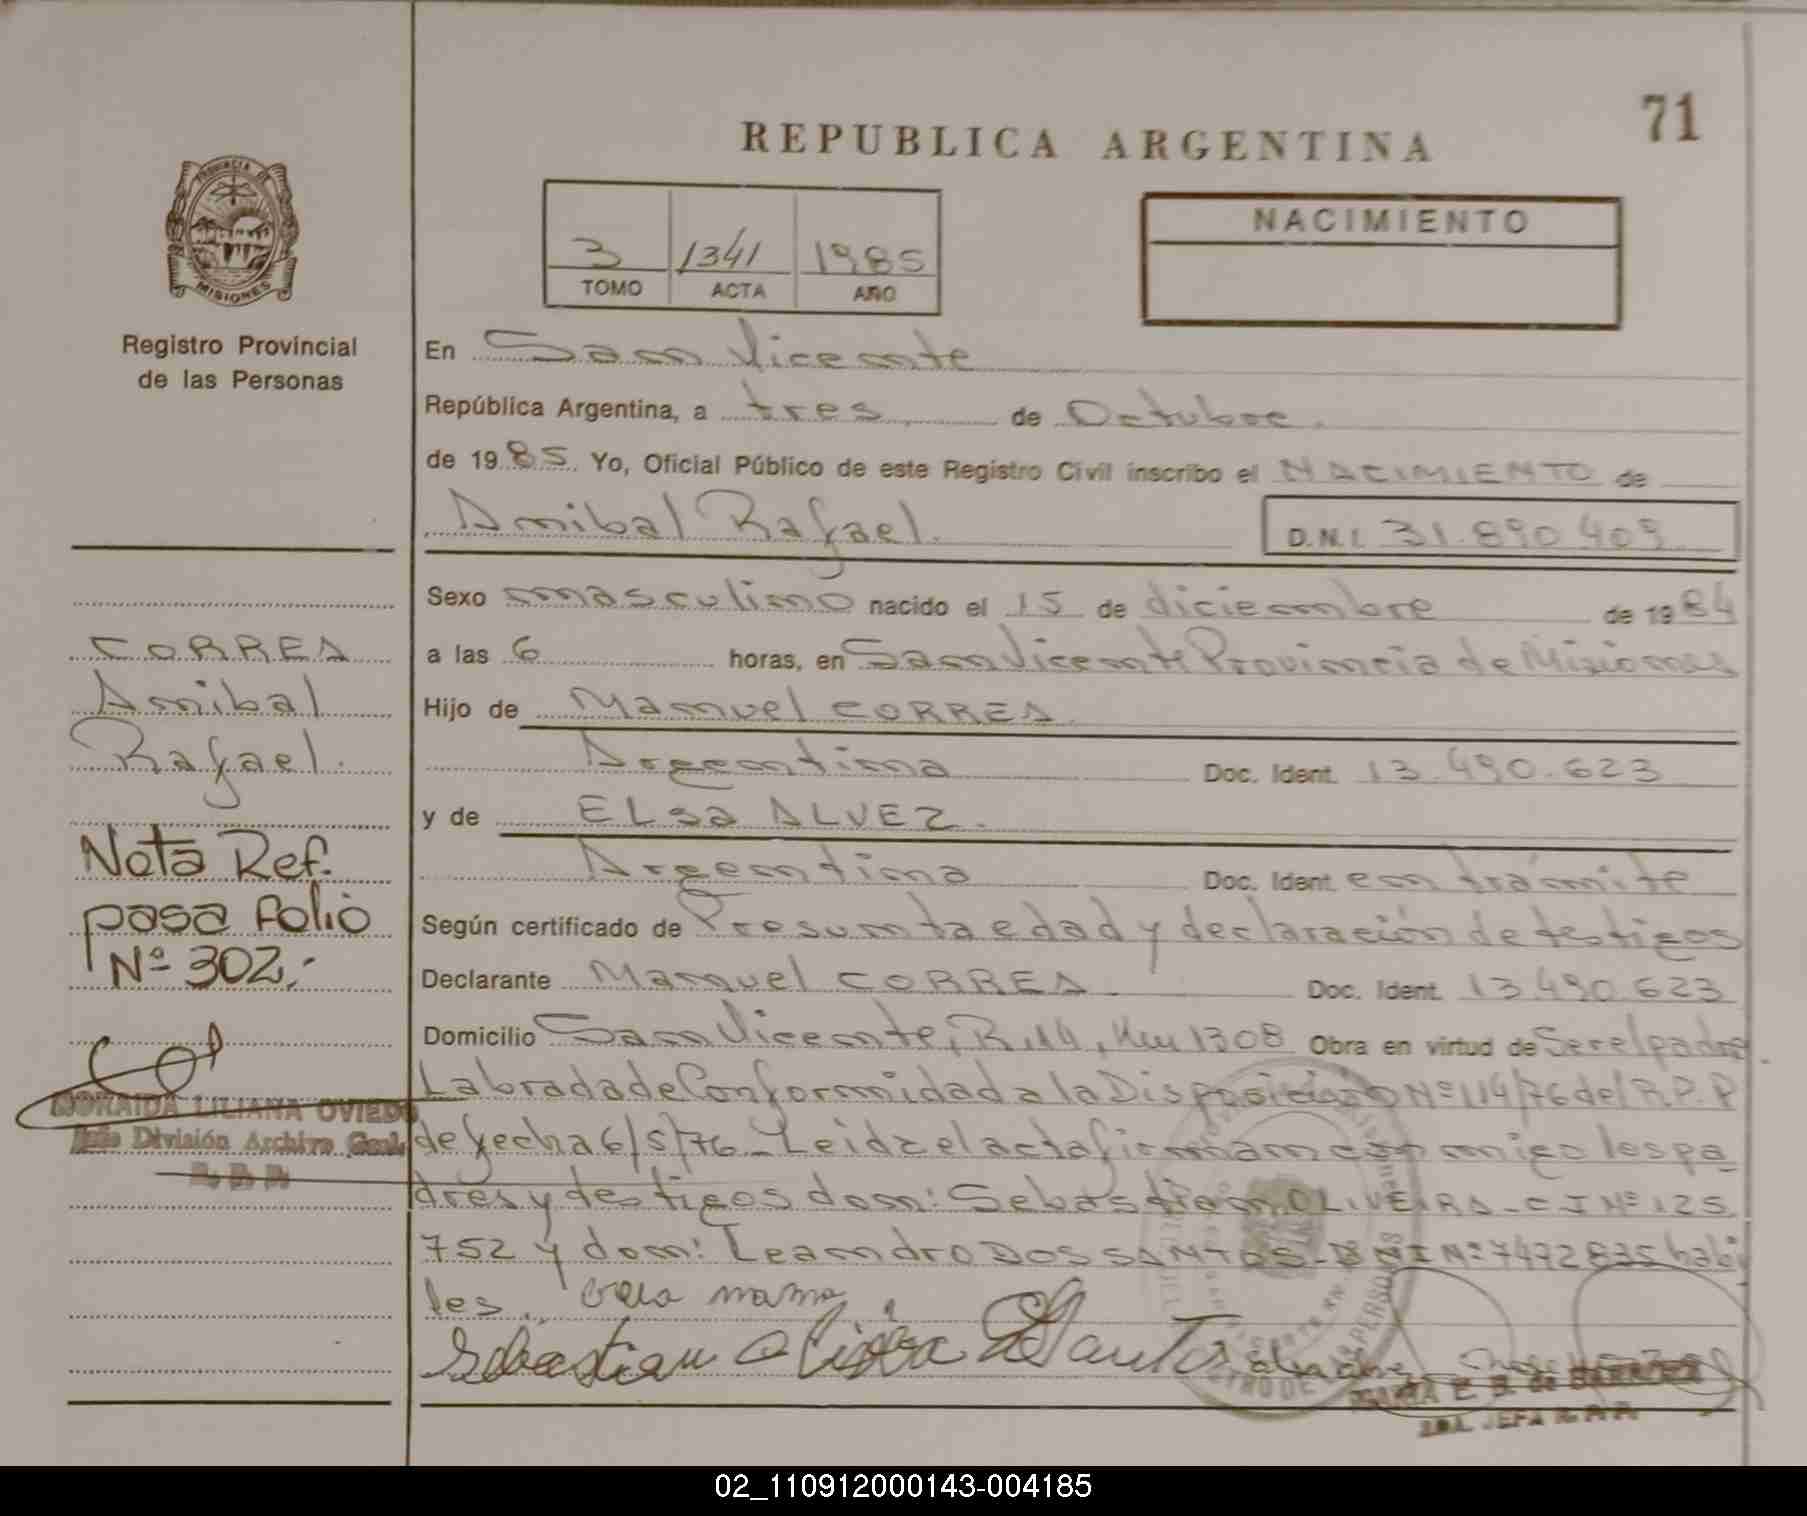 71
REPUBLICA ARGENTINA
PROVINCIA DE
MISIONES
Registro Provincial
de las Personas
3 1341 1985
TOMO ACTA AÑO
NACIMIENTO
En San Vicente
República Argentina, a tres de Octubre.
de 1985. Yo, Oficial Público de este Registro Civil inscribo el NACIMIENTO de
Anibal Rafael. D.N.I. 31.890.409
Sexo masculino nacido el 15 de diciembre de 1984
a las 6 horas, en San Vicente Provincia de Misiones
Hijo de Manuel CORREA
Argentina Doc. Ident. 13.490.623
y de ELSA ALVEZ.
Argentina Doc. Ident. en trámite
Según certificado de Presunta edad y declaración de testigos
Declarante Manuel CORREA Doc. Ident. 13.490.623
Domicilio San Vicente, R.14, Km 1308 Obra en virtud de Ser el padre.
Labrada de Conformidad a la Disposición Nº 114/76 del R.P.P
de fecha 6/5/76_ Leida el acta firman conmigo los pa
dres y testigos don: Sebastian OLIVEIRA - CI Nº 125
752 y don: Leandro DOS SANTOS - DNI Nº 7472835 habi
les.
Sebastian Olivera Santos
MARIA E. B. de BARRERA
JEFA R.P.P.
CORREA
Anibal
Rafael.
Nota Ref.
pasa folio
Nº 302.-
ZORAIDA LILIANA OVIEDO
Jefe División Archivo Gral.
02_110912000143-004185